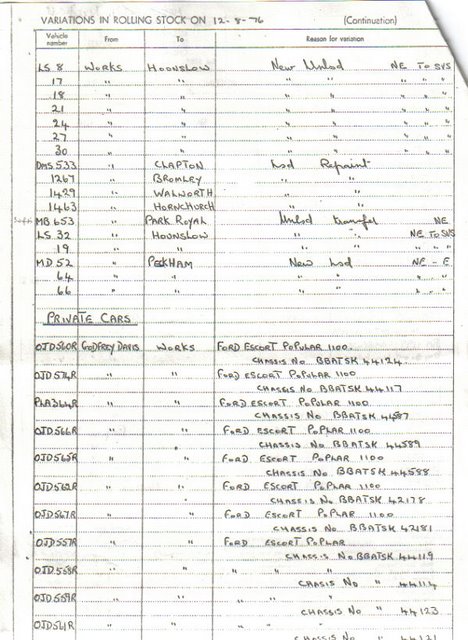 VARIATIONS IN ROLLING STOCK ON 12-8-76 (Continuation)
Vehicle number From To Reason for variation
LS 8 WORKS HOUNSLOW New Unlsd NE TO SVS
17 " " " " " " "
18 " " " " " " "
21 " " " " " " "
24 " " " " " " "
27 " " " " " " "
30 " " " " " " "
DMS 533 " CLAPTON Lsd Repaint
1267 " BROMLEY " "
1429 " WALWORTH " "
1463 " HORNCHURCH " "
MB 653 " PARK ROYAL Unlsd transfer NE
LS 32 " HOUNSLOW " " NE TO SVS
19 " " " " " " "
MD 52 " PECKHAM New Lsd NE - E
64 " " " " " " "
66 " " " " " " "
PRIVATE CARS
OJD 560R GODFREY DAVIS WORKS FORD ESCORT POPULAR 1100.
CHASSIS No BBATSK 44124
OJD 574R " " FORD ESCORT POPULAR 1100
CHASSIS No BBATSK 44117
PLA 364R " " FORD ESCORT POPULAR 1100.
CHASSIS No BBATSK 44587
OJD 566R " " FORD ESCORT POPLAR 1100
CHASSIS No BBATSK 44589
OJD 565R " " FORD ESCORT POPLAR 1100
CHASSIS No BBATSK 44588
OJD 562R " " FORD ESCORT POPLAR 1100
CHASSIS No BBATSK 42178
OJD 567R " " FORD ESCORT POPLAR 1100
CHASSIS No BBATSK 42181
OJD 557R " " FORD ESCORT POPLAR
CHASSIS No BBATSK 44119
OJD 558R " " " " " "
CHASSIS No " 44114
OJD 559R " " " " "
CHASSIS No " 44123
OJD 561R " " " " "
CHASSIS No " 44121